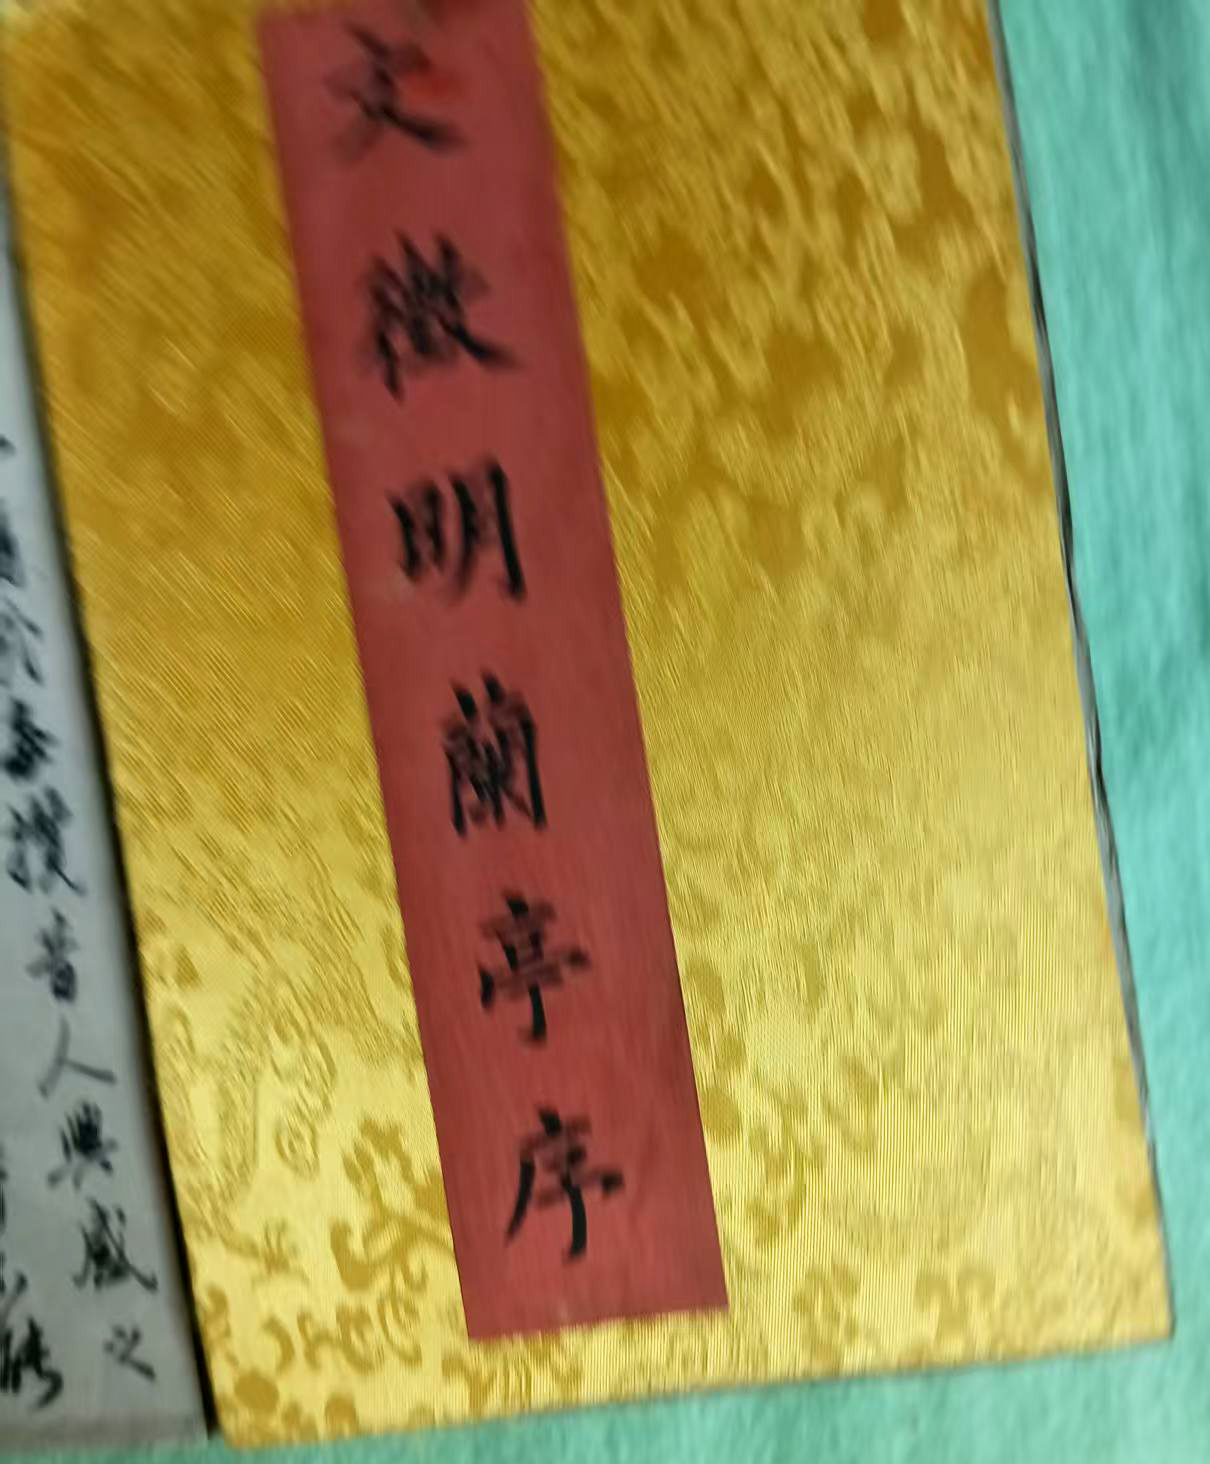 文徵明蘭亭序
昔人興感之